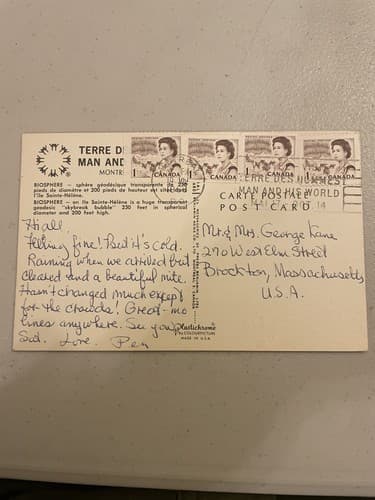 TERRE D
MAN AND
MONTR
BIOSPHERE — sphère géodésique transparente de 250
pieds de diamètre et 200 pieds de hauteur est située dans
l'Ile Sainte-Hélène.
BIOSPHERE — on Ile Sainte-Hélène is a huge transparent
geodesic "skybreak bubble" 250 feet in spherical
diameter and 200 feet high.
Hi all,
Feeling fine! But it's cold.
Raining when we arrived but
cleared and a beautiful nite.
Hasn't changed much except
for the crowds! Great - no
lines anywhere. See you
Sat. Love. Pen
Plastichrome
by COLOURPICTURE
MADE IN U.S.A.
1 CANADA
1 CANADA
CANADA
CANADA
TERRE DES HOMMES
MAN AND HIS WORLD
CARTE POSTALE
POST CARD
14
Mr. & Mrs. George Kane
270 West Elm Street
Brockton, Massachusetts
U.S.A.